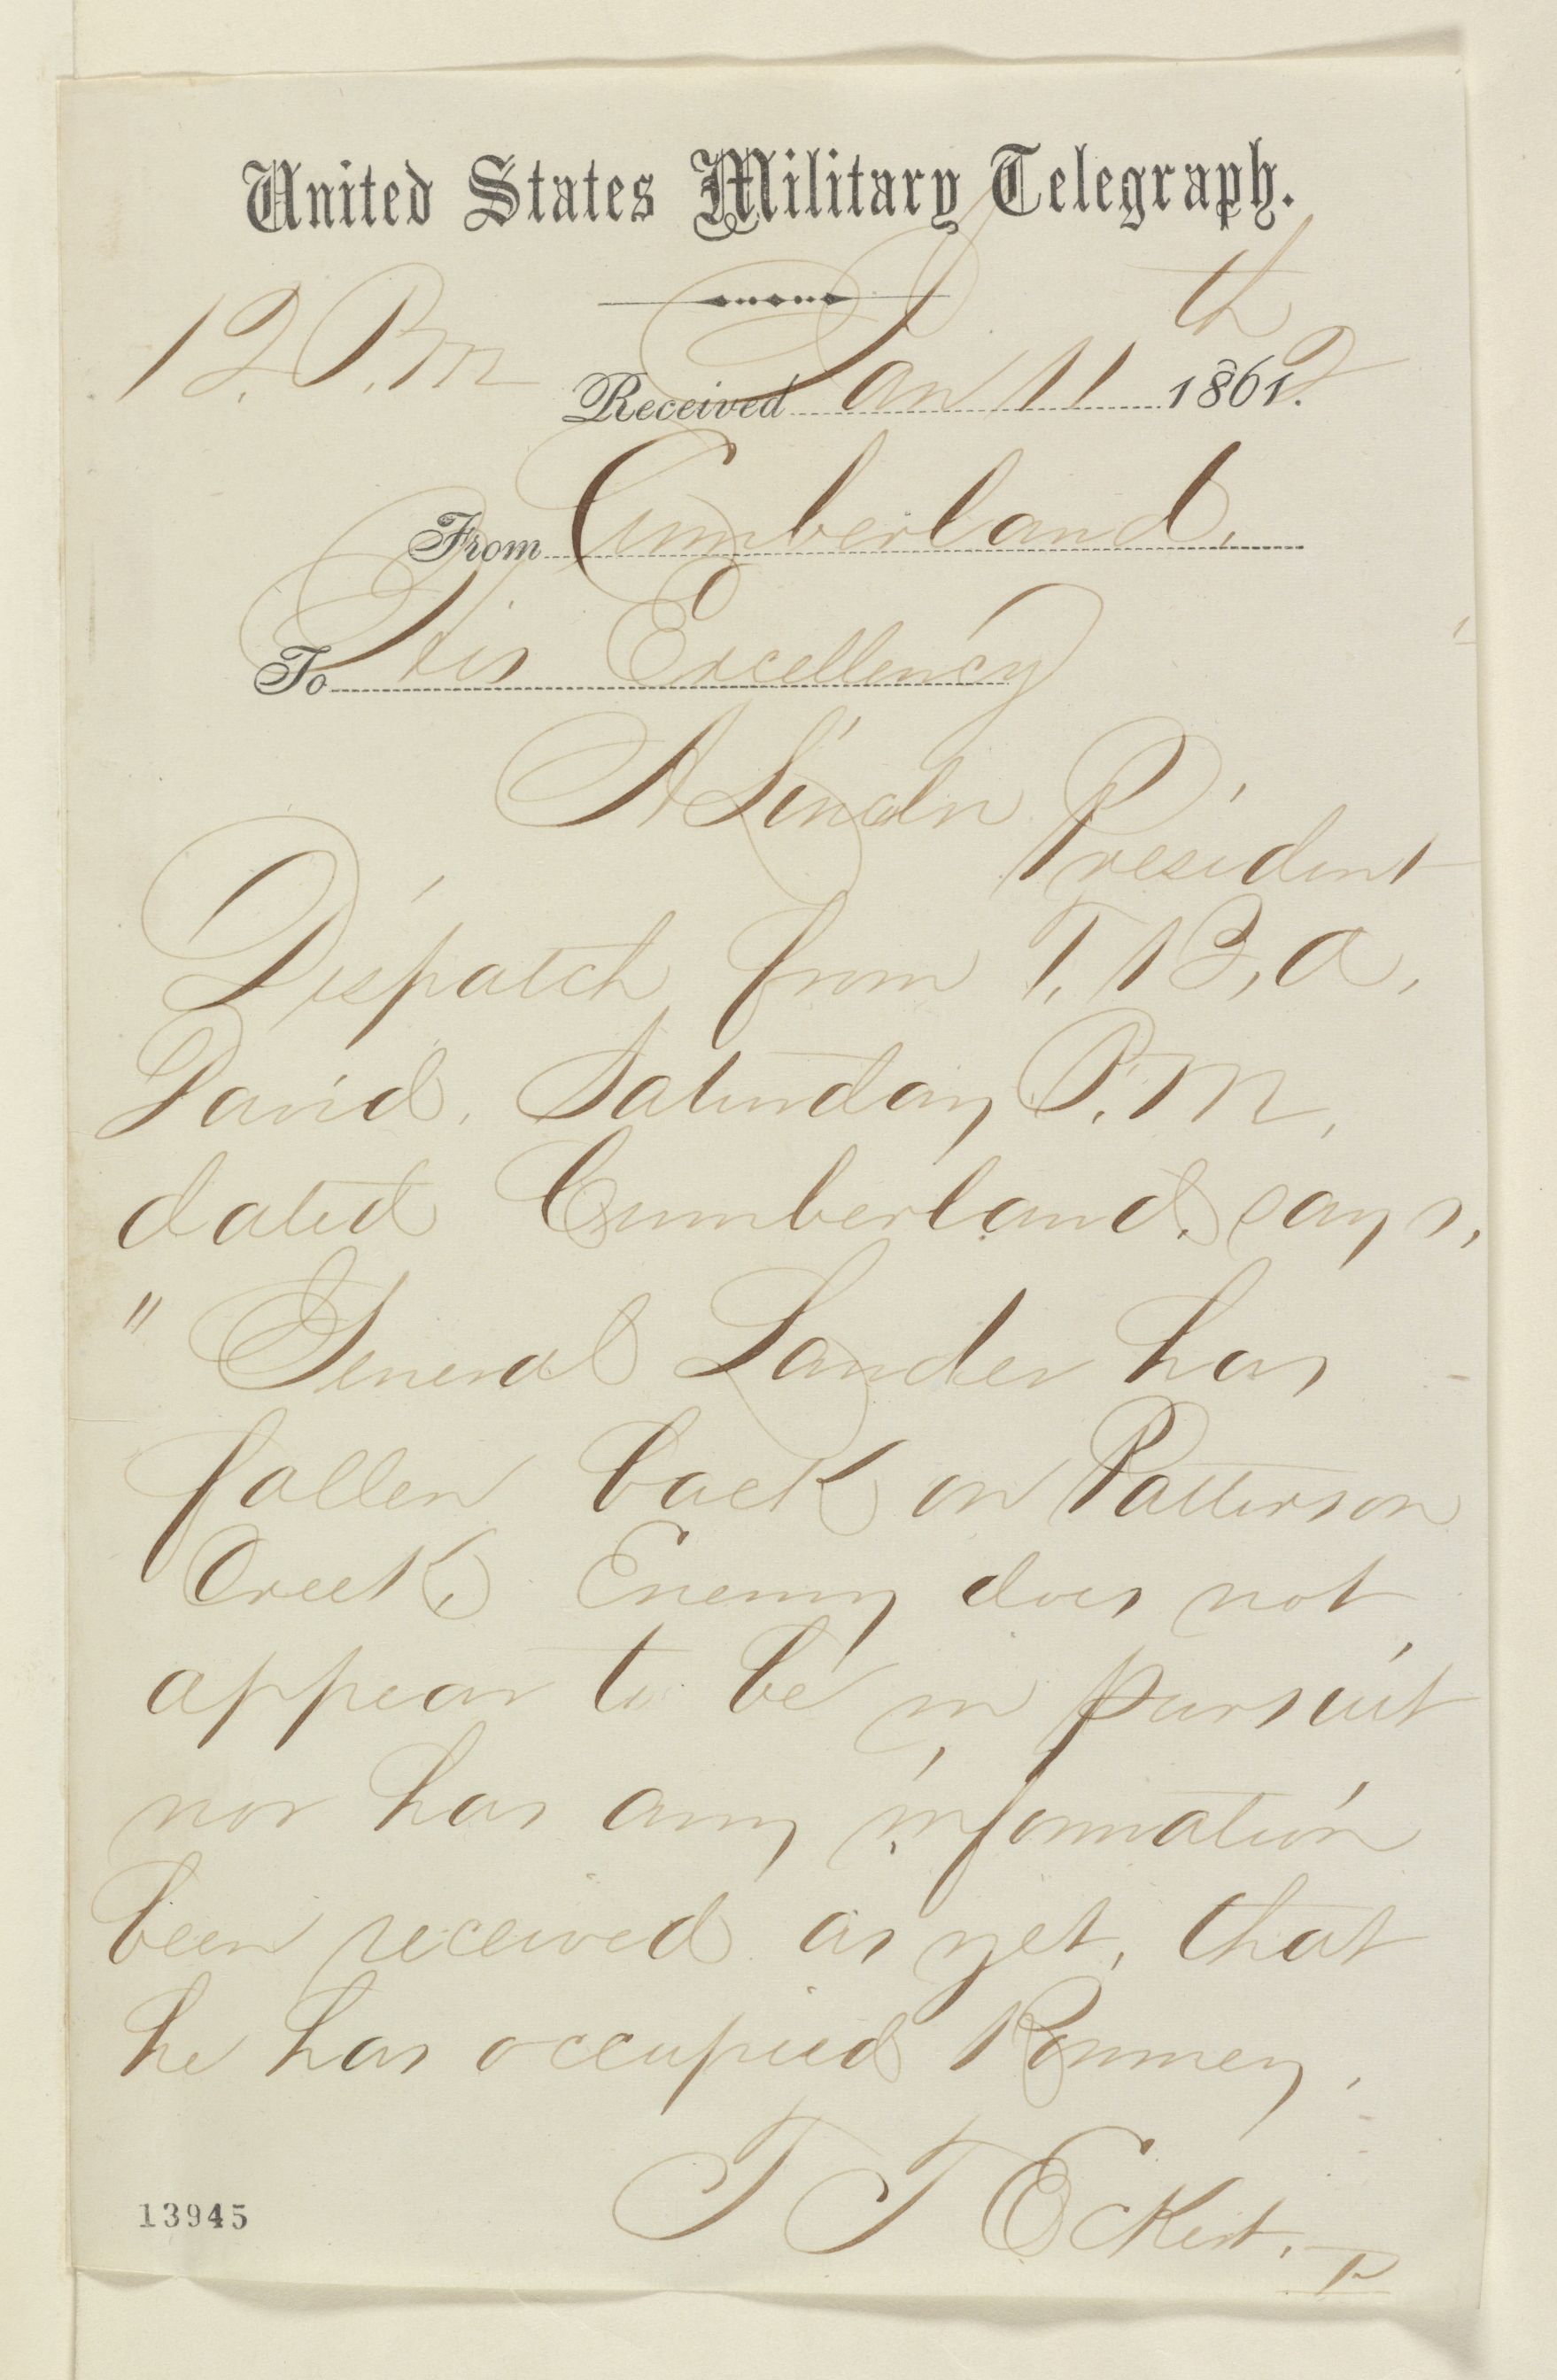 United States Military Telegraph.
12. P.m
th
Received Jan 11 1862.
From Cumberland.
To His Excellency
A Lincoln President
Dispatch from T, B, A,
David. Saturday P.M,
dated Cumberland. says,
" General Lander has
fallen back on Patterson
Creek. Enemy does not
appear to be in pursuit
nor has any information
been received as yet, that
he has occupied Romney.
T T Eckert.
13945